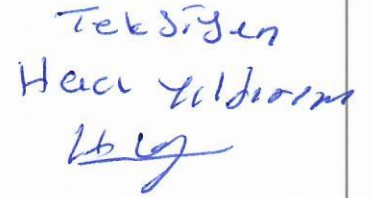 Teksiyen
Hacı Yıldırım